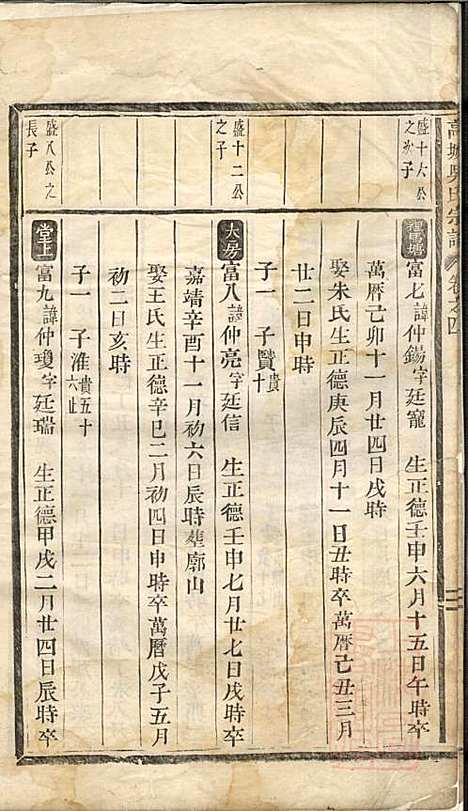 高塘吳氏宗譜 卷之四
盛十六公之次子
里塘 富七諱仲錫字廷寵 生正德壬申六月十五日午時卒
萬曆己卯十一月廿四日戌時
娶朱氏生正德庚辰四月十一日丑時卒萬曆己丑三月
廿二日申時
子一 子賢貴十
盛十二公之子
大房 富八諱仲亮字廷信 生正德壬申七月廿七日戌時卒
嘉靖辛酉十一月初六日辰時塟廓山
娶王氏生正德辛巳二月初四日申時卒萬曆戊子五月
初二日亥時
子一 子淮貴五十六止
盛八公之長子
堂上 富九諱仲瓊字廷瑞 生正德甲戌二月廿四日辰時卒